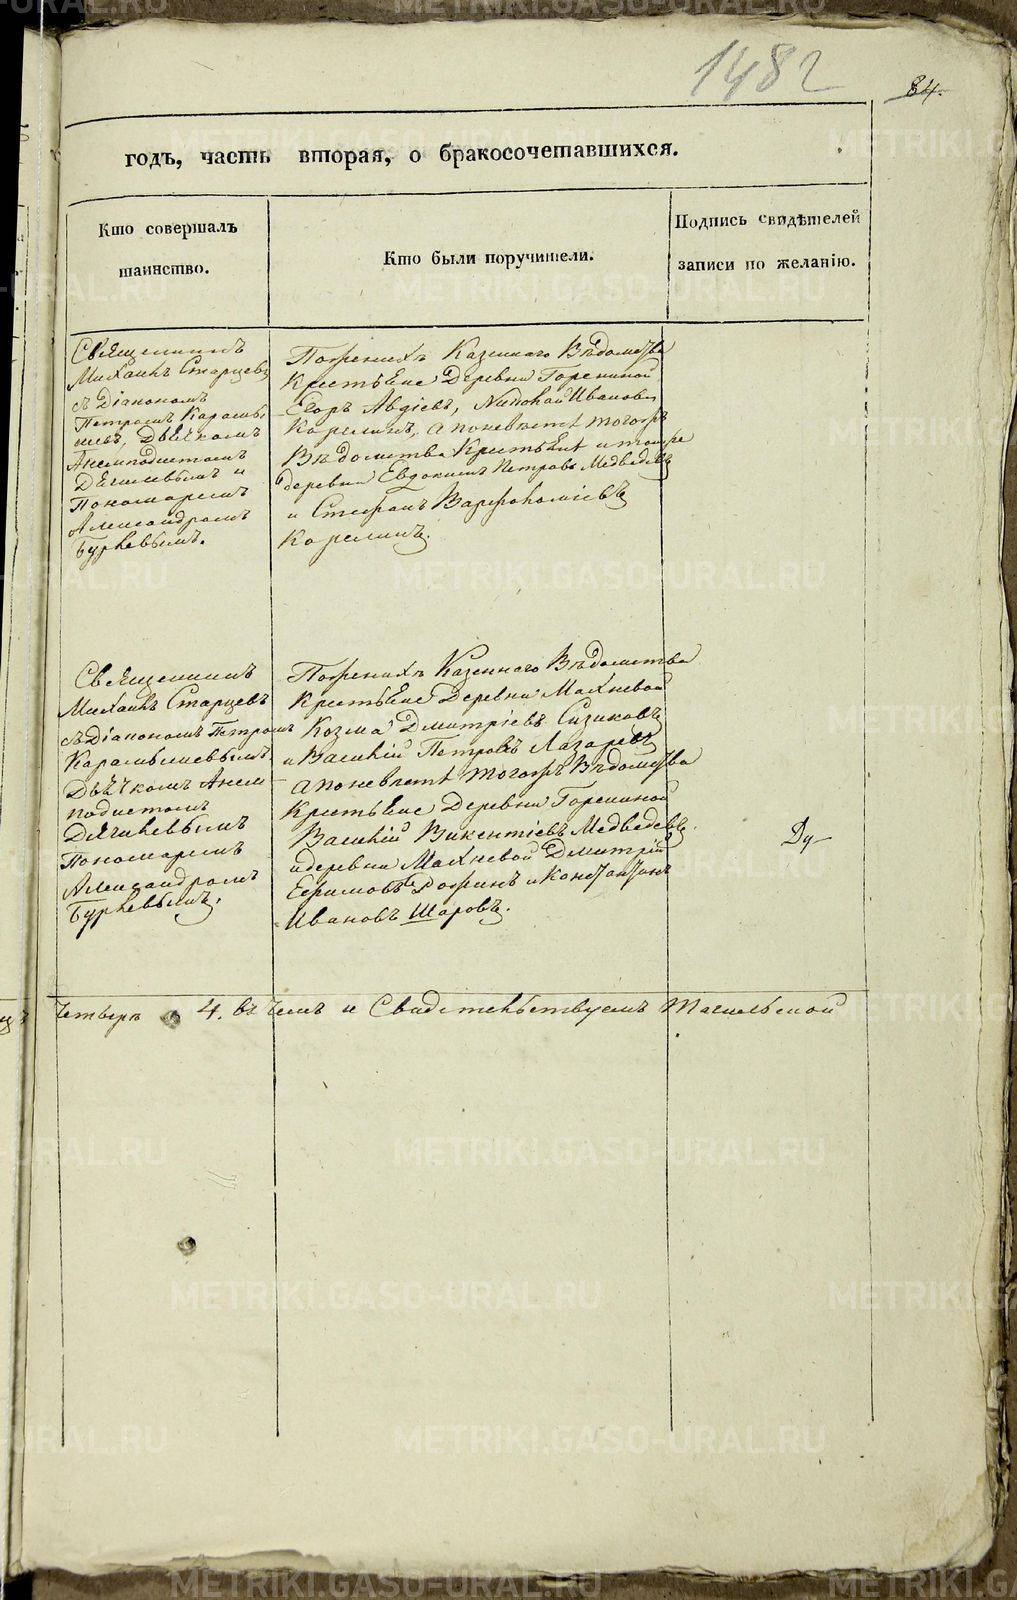 1482
84.
годъ, часть вторая, о бракосочетавшихся.
Кто совершалъ
таинство.
Кто были поручители.
Подпись свидѣтелей
записи по желанію.
Священникъ
Михаилъ Старцевъ
съ Діакономъ
Петромъ Карамы
шевъ, Дьячкомъ
Анемподистомъ
Дягилевымъ и
Пономаремъ
Александромъ
Бурлевымъ.
Поженихѣ Казеннаго Вѣдомства
Крестьяне Деревни Горениной
Егоръ Авдіевъ, Николай Ивановъ
Корелинъ, а поневѣстѣ тогожъ
Вѣдомства Крестьяне и тойже
деревни Евдокимъ Петровъ Медведевъ
и Стефанъ Варфоломіевъ
Корелинъ.
Священникъ
Михаилъ Старцевъ
съ Діакономъ Петромъ
Карамышевымъ
Дьячкомъ Анем
подистомъ
Дягилевымъ
Пономаремъ
Александромъ
Бурлевымъ.
Поженихѣ Казеннаго Вѣдомства
Крестьяне Деревни Махневой
Козма Дмитріевъ Сизиковъ
и Василій Петровъ Лазаревъ
а поневѣстѣ тогожъ Вѣдомства
Крестьяне Деревни Горениной
Василій Викентіевъ Медведевъ
и деревни Махневой Дмитрій
Ефимовъ и Константинъ
Ивановъ Шаровъ.
Четверъ 4. въ чемъ и Свидетельствуемъ Тагильской
METRIKI.GASO-URAL.RU